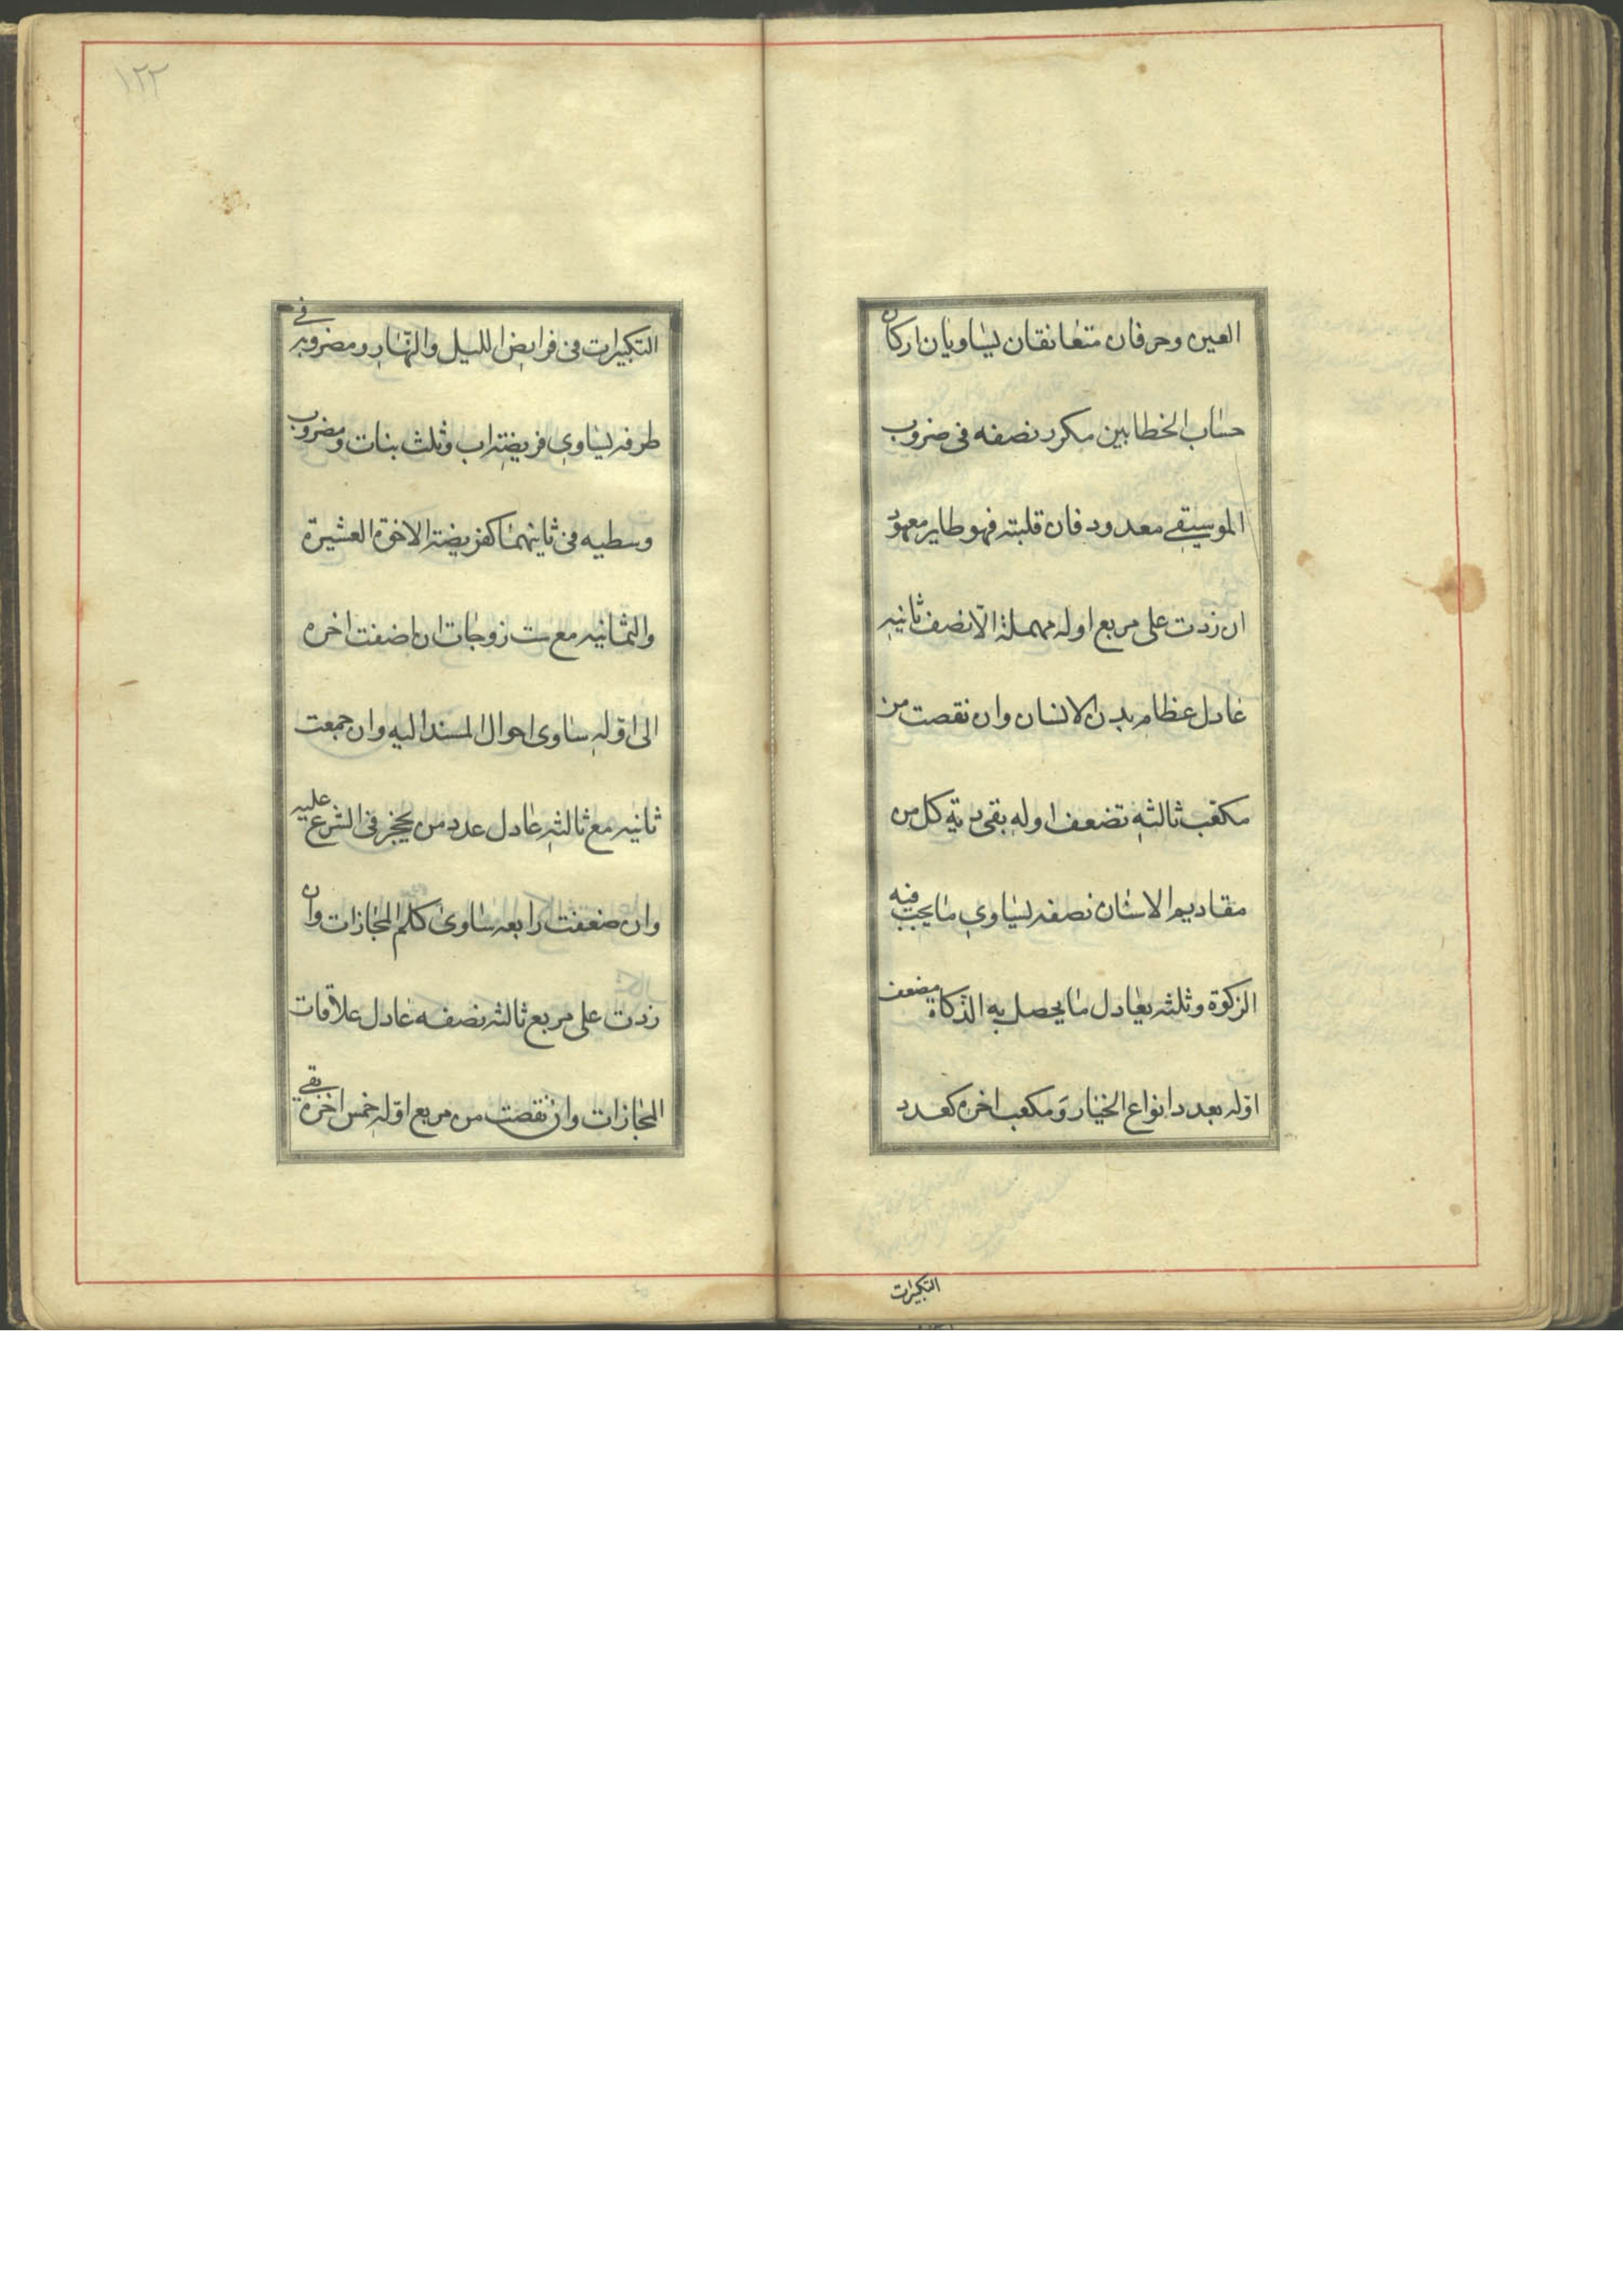 العين وحرفان متعانقان يساويان اركان
حساب الخطايين مكرر نصفه فى ضروب
الموسيقى معدود فان قلبته فهو طاير معهود
ان زدت على مربع اوله مهملة الا نصف ثانيه
عادل عظام بدن الانسان وان نقصت من
مكعب ثالثه تضعف اوله بقى دية كل من
مقاديم الاسنان نصفه يساوى ما يجب فيه
الزكوة وثلثه يعادل ما يحصل به الذكاة مضعف
اوله بعدد انواع الخيار ومكعب اخره كعدد
التكبيرات
١٢٢
التكبيرات فى فرايض الليل والنهار ومضروب فى
طرفه يساوى فريضة اب وثلث بنات ومضروب
وسطيه فى ثانيهما كفريضة الاخوة العشيرة
والثمانيه مع ست زوجات ان اضفت اخره
الى اوله ساوى احوال المسند اليه وان جمعت
ثانيه مع ثالثه عادل عدد من يحجر فى الشرع عليه
وان ضعفت رابعه ساوى كلم المجازات وان
زدت على مربع ثالثه نصفه عادل علاقات
المجازات وان نقصت من مربع اوله خمس اخره بقى